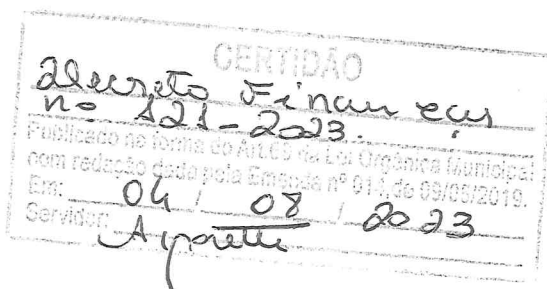 CERTIDÃO
Decreto Financeiro
nº 121-2023.
Publicado na forma do Art. 69 da Lei Orgânica Municipal
com redação dada pela Emenda nº 011, de 09/05/2019.
Em: 04 / 08 / 2023
Servidor: